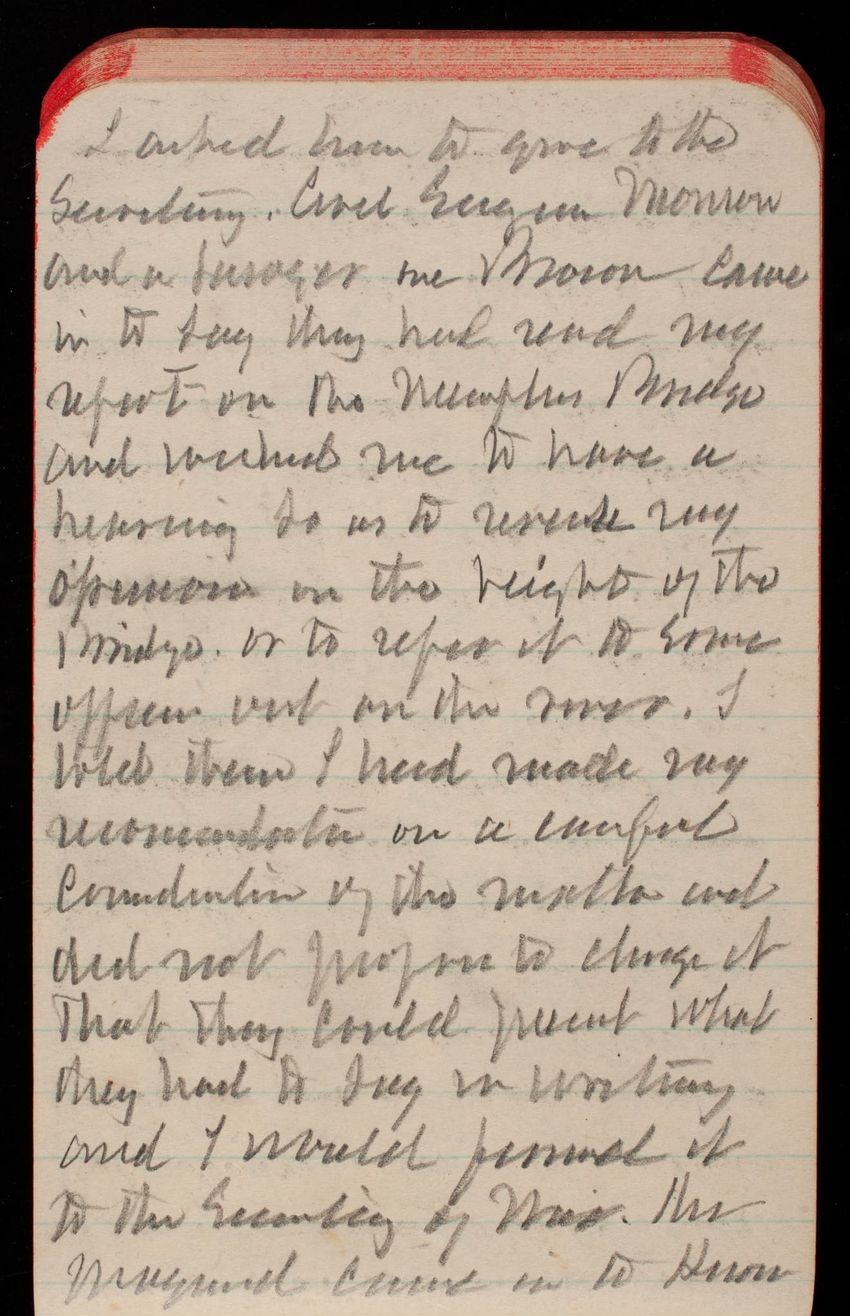 I asked him to give to the
Secretary. Civil Engineer Monroe
and a lawyer one Brown came
in to say they had read my
report on the Memphis Bridge
and wished me to have a
hearing so as to revise my
opinion on the height of the
Bridge. or to refer it to some
officer out on the river. I
told them I had made my
recomendation on a careful
Consideration of the matter and
did not propose to change it
That they could present what
they had to say in writing
and I would forward it
to the Secretary of War. Mr
came in to Know